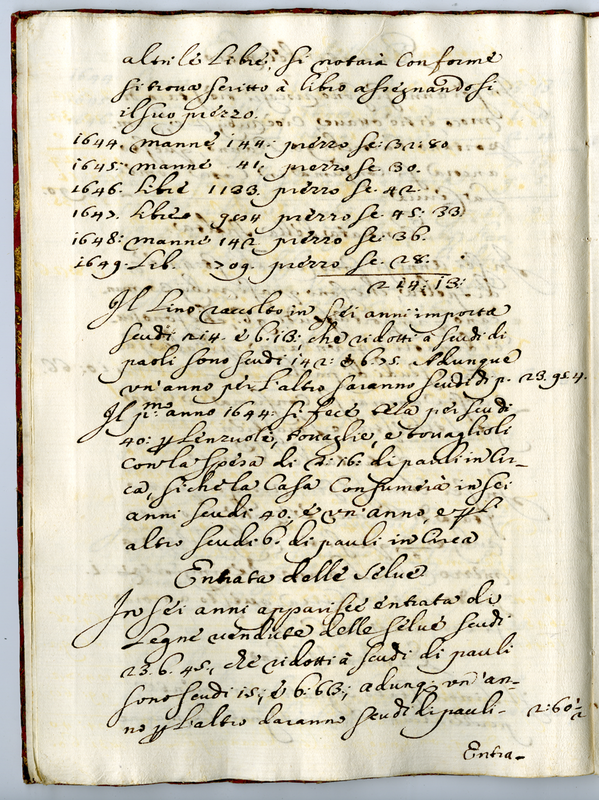 altri le Libre, si notarà Conforme
si trova scritto à libro assegnandosi
il suo prezzo.
1644. manne 144. prezzo sc. 32: 80
1645: manne 41. prezzo sc. 30.
1646. Libre 1133. prezzo sc. 42.
1647. Libre prezzo sc. 45: 33
1648: manne 142 prezzo sc: 36.
1649. Lib. 709. prezzo sc. 28.
214: 13:
Il Lino raccolto in sei anni importa
scudi 214. e b. 13; che ridotti à scudi di
paoli sono scudi 142: e b. 75. Adunque
un' anno per l'altro saranno scudi di p. 23. 95 4.
Il p.mo anno 1644: si fece tela per scudi
40: p Lenzuole, tovaglie, e tovaglioli
con la spesa di 2: 16: di pauli in Cir-
ca, sichè la Casa Consumerà in sei
anni scudi 40; e un' anno, e p l'
altro scudi 6. di pauli in Circa
Entrata delle selve
In sei anni apparisce entrata di
Legne vendute delle selve scudi
23. b. 45, che ridotti à scudi di pauli
sono scudi 15; e b: 63; adunq; un' an-
no p l'altro daranno scudi di pauli - 2: 60 1/2
Entra-